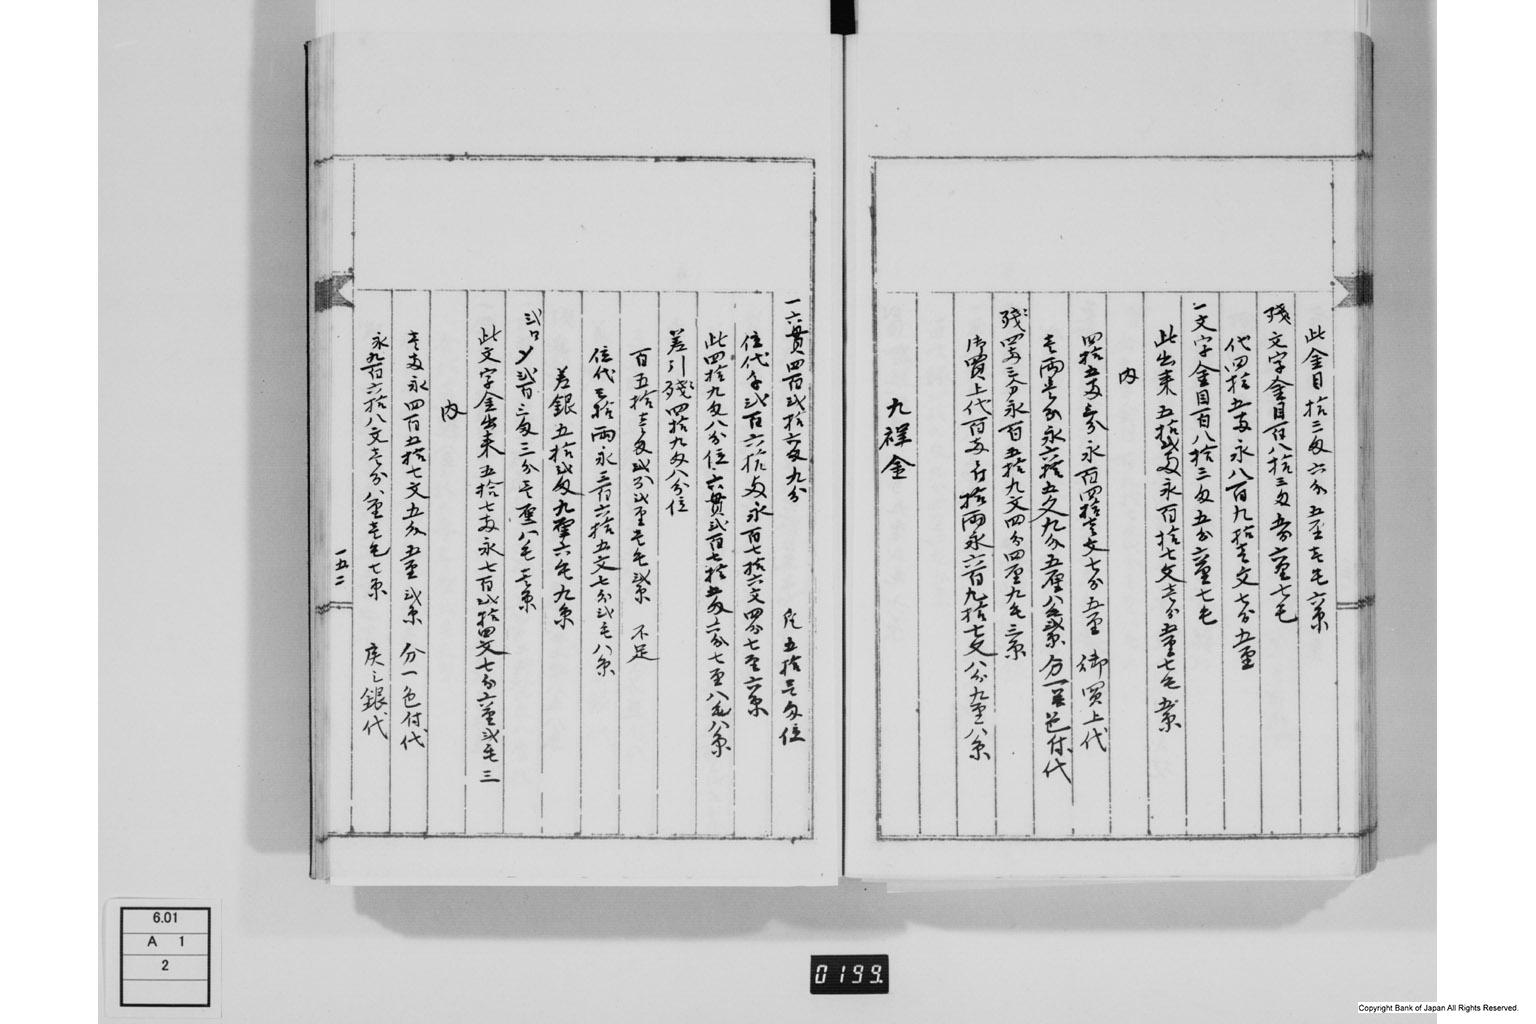 此金目拾三匁六分五厘壱毛六糸
残文字金目百八拾三匁五分六厘七毛
代四拾五両永八百九拾壱文七分五厘
一文字金目百八拾三匁五分六厘七毛
此出来五拾弐両永百拾七文壱分五厘七毛五糸
内
四拾五両三分永百四拾壱文七分五厘 御買上代
壱両壱分永六拾五文九分五厘八毛弐糸 分一色付代
残四両三分永百五拾九文四分四厘九毛三糸
御買上代百両ニ付拾両永六百九拾七文八分九厘八糸
九祥金
一六貫四百弐拾六匁九分 五拾壱匁位
位代千弐百六拾両永百七拾六文四分七厘六糸
此四拾九匁八分位六貫弐百七拾五匁六分七厘八毛八糸
差引残四拾九匁八分位
百五拾壱匁弐分弐厘壱毛弐糸 不足
位代三拾両永三百六拾五文七分弐毛八糸
差銀五拾弐匁九厘六毛九糸
弐口〆弐百三匁三分壱厘八毛壱糸
此文字金出来五拾七両永七百弐拾四文七分六厘弐毛三
内
壱両永四百五拾七文五分五厘弐糸 分一色付代
永九百六拾八文壱分八厘壱毛七糸 戻シ銀代
一五二
6.01
A 1
2
0199
Copyright Bank of Japan All Rights Reserved.